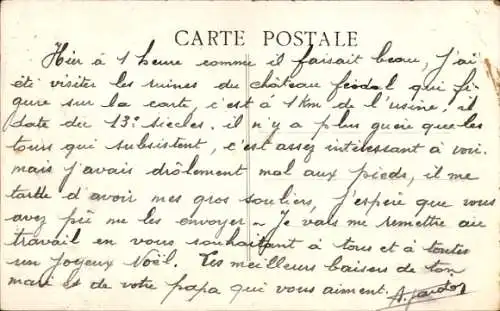 CARTE POSTALE
Hier à 1 heure comme il faisait beau, j'ai
été visiter les ruines du château féodal qui fi-
gure sur la carte, c'est à 1 km de l'usine, il
date du 13e siècles. il n'y a plus guère que les
tours qui subsistent, c'est assez intéressant à voir.
mais j'avais drôlement mal aux pieds, il me
tarde d'avoir mes gros souliers, j'espère que vous
avez pu me les envoyer - Je vais me remettre au
travail en vous souhaitant à tous et à toutes
un Joyeux Noël. Les meilleurs baisers de ton
mari et de votre papa qui vous aiment.